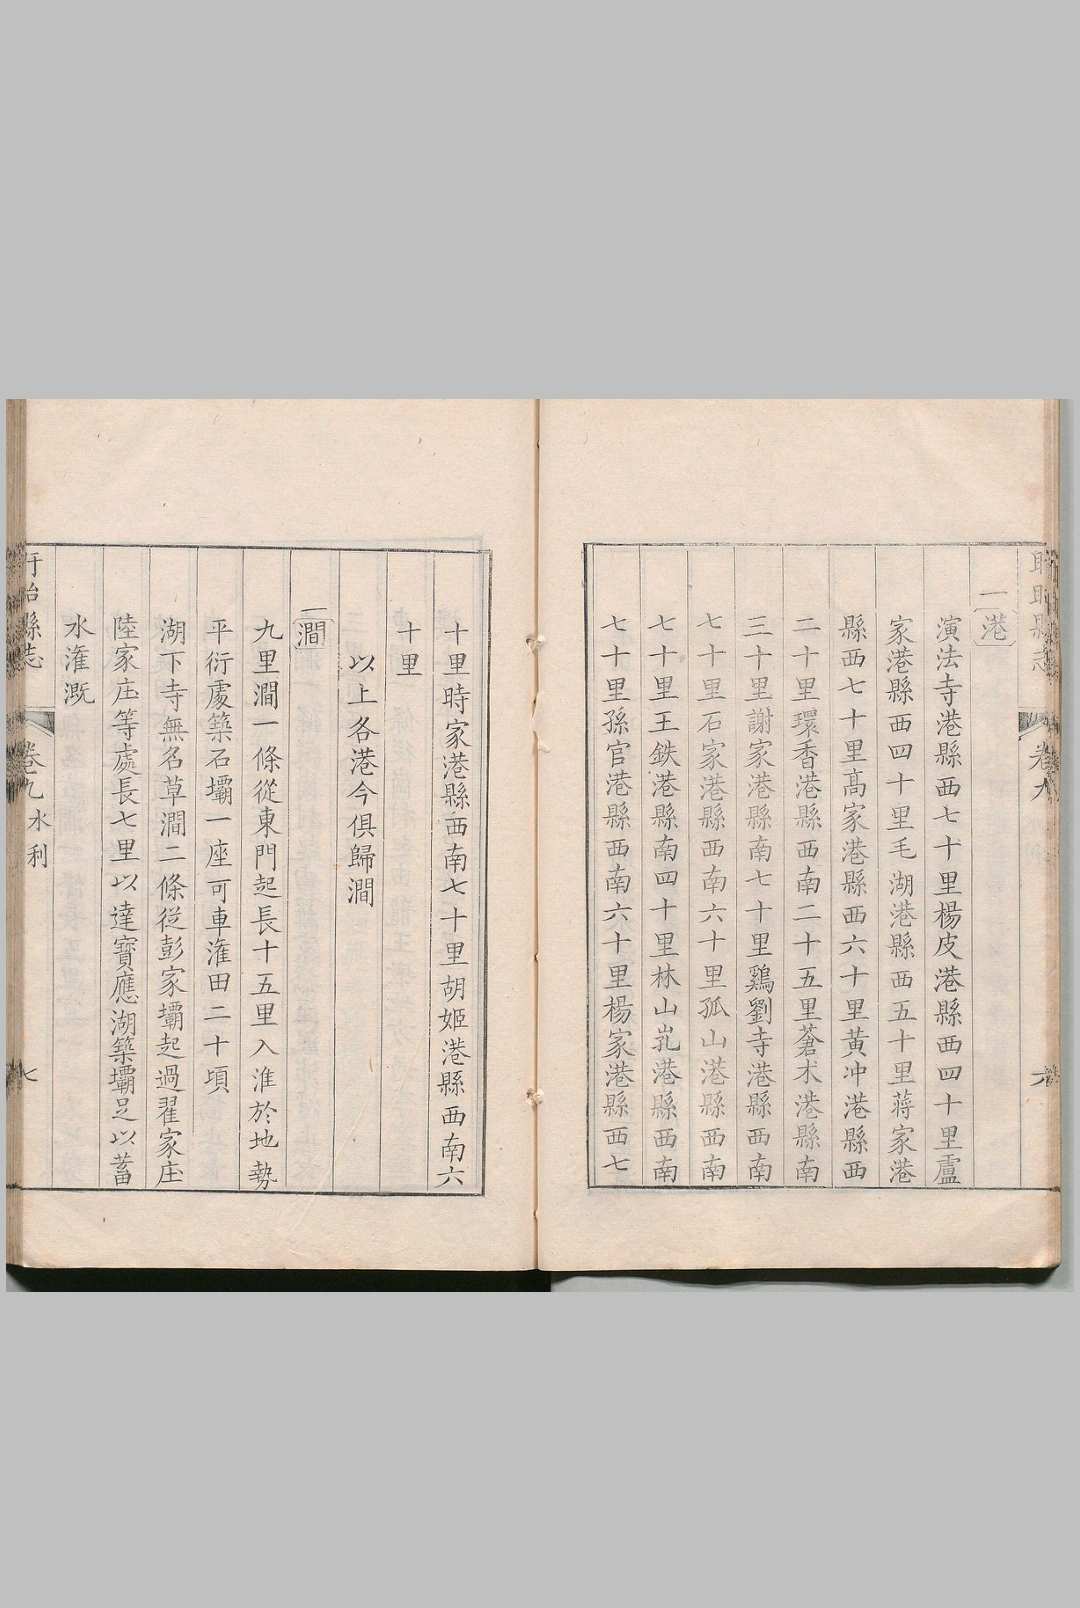 一港
演法寺港縣西七十里楊皮港縣西四十里盧
家港縣西四十里毛湖港縣西五十里蔣家港
縣西七十里高家港縣西六十里黃冲港縣西
二十里環香港縣西南二十五里蒼术港縣南
三十里謝家港縣南七十里鷄劉寺港縣西南
七十里石家港縣西南六十里孤山港縣西南
七十里王鉄港縣南四十里林山乳港縣西南
七十里孫官港縣西南六十里楊家港縣西七
十里時家港縣西南七十里胡姬港縣西南六
十里
以上各港今俱歸澗
一澗
九里澗一條從東門起長十五里入淮於地勢
平衍處築石壩一座可車潅田二十頃
湖下寺無名草澗二條從彭家壩起過翟家庄
陸家庄等處長七里以達寶應湖築壩足以蓄
水潅溉
縣志
卷九水利
七